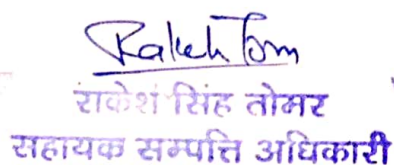 Rakesh Tom
राकेश सिंह तोमर
सहायक सम्पत्ति अधिकारी